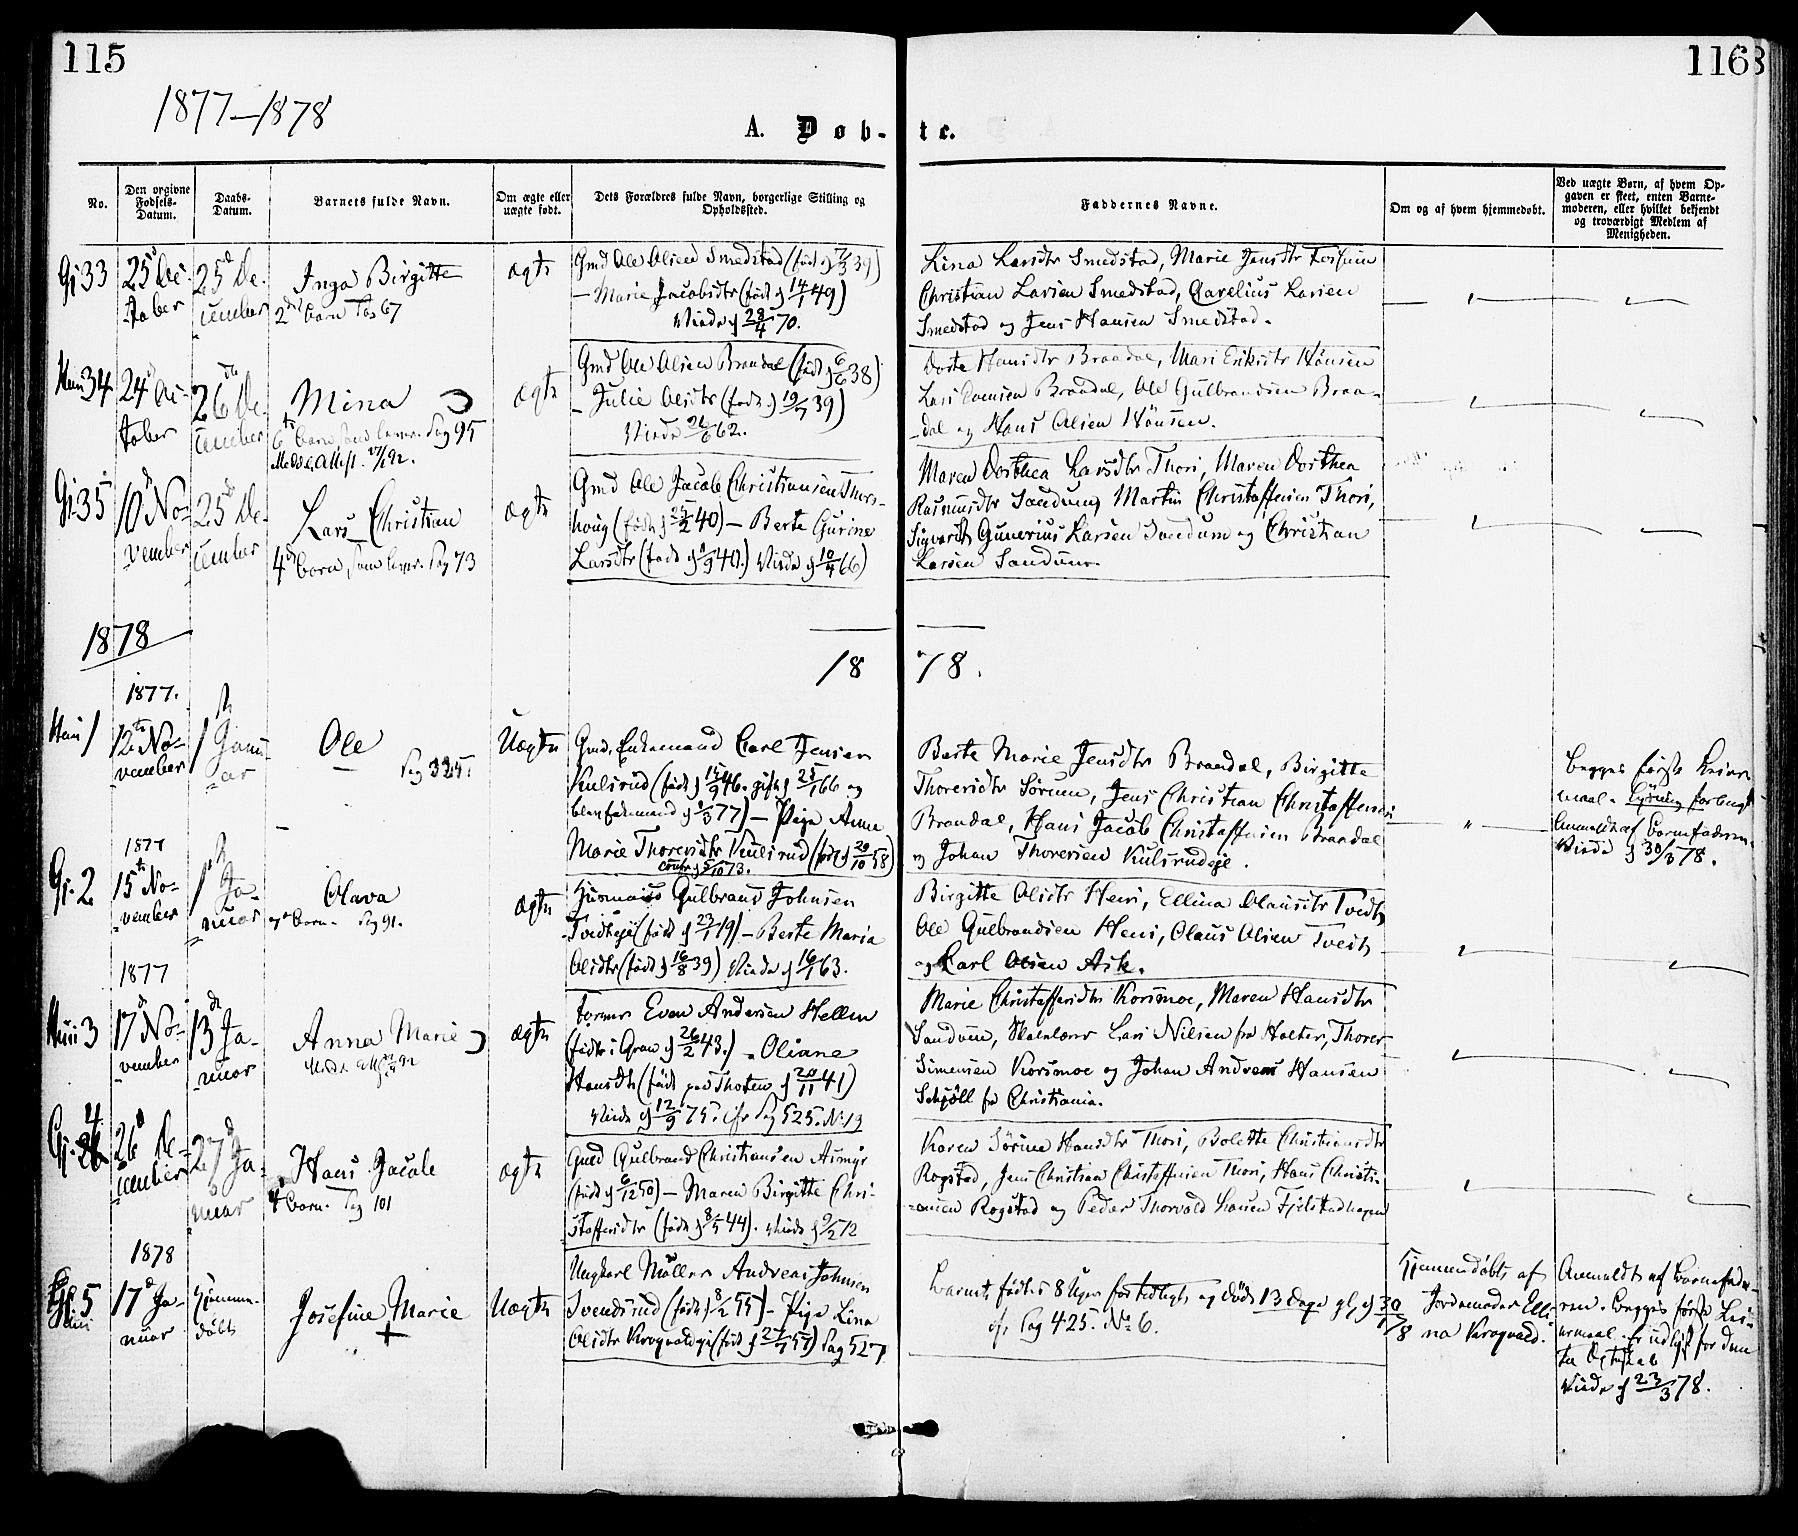 115
1168
1877–1878
A. Døb-te.
No.
Den opgivne Fødsels-Datum.
Daabs-Datum.
Barnets fulde Navn.
Om ægte eller uægte født.
Dets Forældres fulde Navn, borgerlige Stilling og Opholdssted.
Faddernes Navne.
Om og af hvem hjemmedøbt.
Ved uægte Børn, af hvem Op-
gaven er skeet, enten Barne-
moderen, eller hvilket bekjendt
og troværdigt Medlem af
Menigheden.
Gj 33
25d
tober
25d De-
cember
Inga Birgitte
2det Barn Pag 67
ægte
Gmd Ole Olsen Smedstad (født d 7/3 39)
– Marie Jacobsdtr (født d 14/1 49)
Viede d 28/4 70.
Lina Larsdtr Smedstad, Marie Jensdtr
Christian Larsen Smedstad, Gavelius Larsen
Smedstad og Jens Hansen Smedstad.
34
24d
tober
26de De-
cember
Mina
6te Barn som lever. Pag 95
ægte
Gmd Ole Olsen Braadal (født d 6/6 38)
– Julie Olsdtr (født d 19/7 39)
Viede 62.
Dorte Hansdtr Braadal, Mari Eriksdtr Hønsen
Lars Braadal, Ole Gulbrandsen Braa-
dal og Hans Olsen Hønsen.
Gj 35
10d No-
vember
25d De-
cember
Lars Christian
4de Barn, som lever. Pag 73
ægte
Gmd Ole Jacob Christiansen Thors-
houg (født d 25/2 40) – Berte Gurine
Larsdtr (født d 9 40.) Viede d 10/4 66)
Maren Dorthea Larsdtr Thori, Maren Dorthea
Rasmusdtr Sandum, Martin Christoffersen Thori,
Gunerius Larsen Sandum og Christian
Larsen Sandum.
1878
18 78.
1877.
1
12te No-
vember
1ste Janu-
ar
Ole
Pag 325.
Uægte
Gmd, Enkemand Carl Jensen
Kulsrud (født d 15/9 46. gift d 25/1 66 og
blev Enkemand d 1/3 77) – Pige Anne
Marie Thoresdtr Kulsrud (født d 20/10 58)
confr d 5/10 73.
Berte Marie Jensdtr Braadal, Birgitte
Thoresdtr Sørum, Jens Christian Christoffersen
Braadal, Hans Jacob Christoffersen Braadal
og Johan Thoresen Kulsrudeje.
Begges første Leier-
maal.
Anmeldt af Barnefaderen.
Viede d 30/3 78.
1877
Gj. 2
15de No-
vember
1ste Ja-
nuar
Olava
Barn. Pag 91.
ægte
Husmand Gulbrand Johnsen
Tvedteje (født d 23/1 19) – Berte Maria
Olsdtr (født d 16/8 39) Viede d 16/1 63.
Birgitte Olsdtr Heni, Ellina Olausdtr Tvedt,
Ole Gulbrandsen Heni, Olaus Olsen Tvedt
og Carl Olsen Ask.
1877
3
17d No-
vember
13de Ja-
nuar
Anna Marie
ægte
Even Andersen Hellen
(født i Gran d 26/2 43.) – Oliane
Hansdtr (født paa Thoten d 20/11 41)
Viede d 12/9 75. cfr Pag 525. No 19
Marie Christoffersdtr Korsmoe, Maren Hansdtr
Sandum, Lars Nilsen fra Holter, Thorer
Simensen Korsmoe og Johan Andreas Hansen
fra Christiania.
Gj. 4
26d De-
cember
27d Ja-
nuar
Hans Jacob
4 Barn. Pag 101
ægte
Gmd Gulbrand Christiansen Asmyr
(født d 6/12 50) – Maren Birgitte Chri-
stoffersdtr (født d 8/5 44). Viede d 9/2 72
Karen Sørine Hansdtr Thori, Bolette Christiansdtr
Rogstad, Jens Christian Christoffersen Thori, Hans Christi-
ansen Rogstad og Peder Thorvald Hansen Fjelstadhagen
1878
5
17d Ja-
nuar
Hjemme-
døbt
Josefine Marie
+
Uægte
Ungkarl Møller Andreas Johnsen
Svendsrud (født d 8/2 55) – Pige Lina
Olsdtr Krogvoldeje (født d 57) Pag 527
Barnet, fødtes 8 Uger for tidligt og døde 13 Dage gl., d 30/1 78
cfr Pag 425. No 6.
Hjemmedøbt af
Jordemoder Elli-
na Krogvold.
Anmeldt af Barnefade-
ren. Begges første Lei-
ermaal.
Viede d 23/3 78.